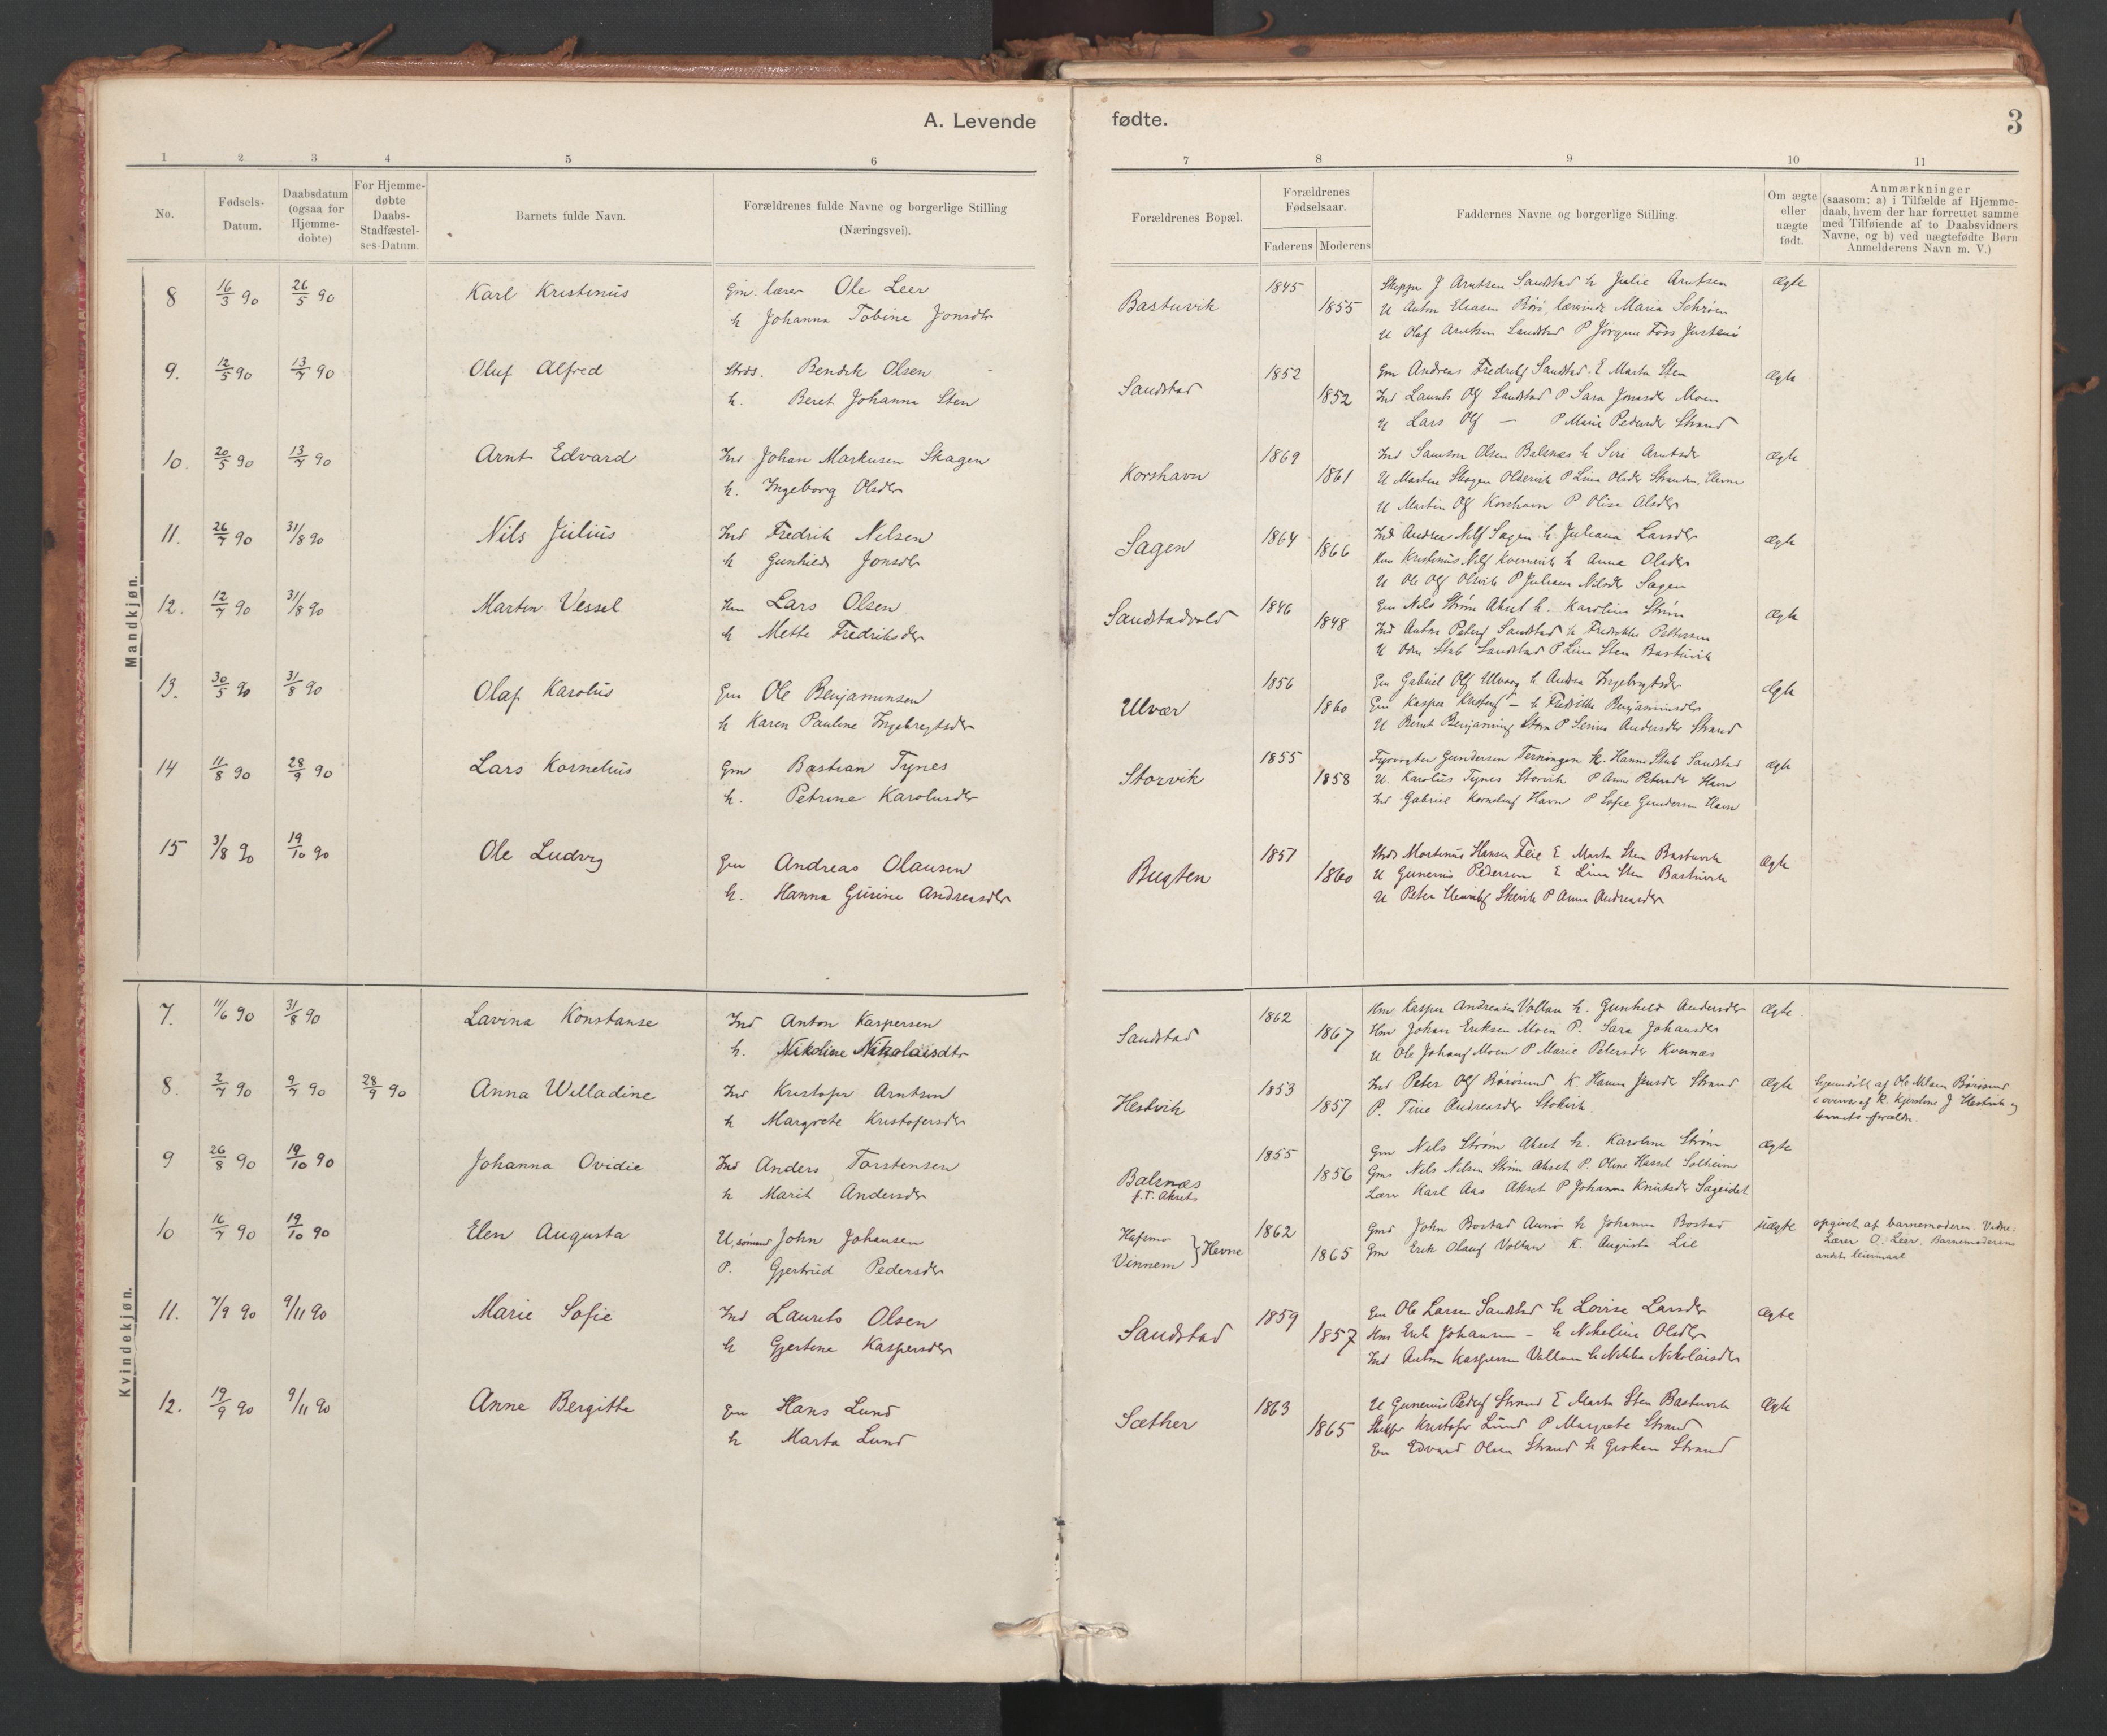 A. Levende
fødte.
3
1 2 3 4 5 6
7 8 9 10 11
No.
Fødsels-
Datum.
Daabsdatum
(ogsaa for
Hjemme-
døbte)
For Hjemme-
døbte
Daabs-
Stadfæstel-
ses-Datum.
Barnets fulde Navn.
Forældrenes fulde Navne og borgerlige Stilling
(Næringsvei).
Forældrenes Bopæl.
Forældrenes
Fødselsaar.
Faderens Moderens
Faddernes Navne og borgerlige Stilling.
Om ægte
eller
uægte
født.
Anmærkninger
(saasom: a) i Tilfælde af Hjemme-
daab, hvem der har forrettet samme
med Tilføiende af to Daabsvidners
Navne, og b) ved uægtefødte Børn
Anmelderens Navn m. V.)
Mandkjøn.
8 16/3 90 26/5 90 Karl Kristinus Gm. lærer Ole Leer
h Johanna Tobine Jonsdtr
Bastuvik 1845 1855
Skipper J Arntsen Sandstad h Julie Arntsen
U Anton Eliasen Börö, lærerinde Maria Schröen
U Olaf Arntsen Sandstad P Jörgine Foss
Ægte
9. 12/5 90 13/7 90 Oluf Alfred Strds. Bendik Olsen
h. Beret Johanna Sten
Sandstad 1852 1852
Gm Andreas Fredriks Sandstad E Marta Sten
Ind Laurits Ols Sandstad P Sara Jonasdr Moen
U Lars Ols — P Marie Pedersdr Strand
Ægte
10. 20/5 90 13/7 90 Arnt Edvard Ind Johan Markusen Skagen
h. Ingeborg Olsdtr
Korshavn 1869 1861
Ind Samson Olsen Balsnæs h Siri Arntsdr
U Morten Skagen Oldervik P Lina Olsdr Stranden, Hevne
U Martin Ols Korshavn P Olisa Olsdr
Ægte
11. 26/7 90 31/8 90 Nils Julius Ind Fredrik Nilsen
h Gunhild Jonsdtr
Sagen 1864 1866
Ind Andreas Nils Sagen h. Juliana Larsdr
Hm Kristinus Nils Kvernvik h Anna Olsdr
U Ole Ols Olsvik P Juliana Nilsdr Sagen
Ægte
12. 12/7 90 31/8 90 Martin Vessel Hm Lars Olsen
h Mette Fredriksdr
Sandstadvold 1846 1848
Gm Nils Strøm Akset h. Karoline Strøm
Ind Anton Peters Sandstad h Fredrikke Pettersen
U Odin Stub Sandstad P Lina Sten Bastuvik
Ægte
13. 30/5 90 31/8 90 Olaf Karolus Gm Ole Benjaminsen
h Karen Pauline Ingebregtsdr
Ulvær 1856 1860
Gm Gabriel Ols Ulvaag h Andrea Ingebregtsdr
Gm Kasper Kristofs — h Fredrikke Benjaminsdtr
U Bernt Benjamins Strøm P Serina Andersdr Strand
Ægte
14 11/8 90 28/9 90 Lars Kornelius Gm Bastian Tynes
h. Petrine Karolusdr
Storvik 1855 1858
Fyrvogter Gundersen Terningen K. Hanna Stub Sandstad
U. Karolus Tynes Storvik P Anne Petersdr Havn
Ind Gabriel Kornelius Havn P Sofie Gundersen Havn
Ægte
15 3/8 90 19/10 90 Ole Ludvig Gm Andreas Olausen
h. Hanna Gurine Andreasdtr
Bugten 1857 1860
Strds Martinus Hansen Feie E Marta Sten Bastuvik
U Gunerius Pedersen E Lina Sten Bastuvik
U Peter Henriks Skevik P Anna Andreasdr
Ægte
Kvindekjøn.
7. 11/6 90 31/8 90 Lavina Konstanse Ind Anton Kaspersen
h. Nikoline Nikolaisdtr
Sandstad 1862 1867
Hm Kasper Andreasen Vollan h. Gunhild Andersdr
Hm Johan Eriksen Moen P. Sara Johansdr
U Ole Johans Moen P Marie Petersdr Kvernæs
Ægte.
8. 2/7 90 9/7 90 28/9 90 Anna Willadine Ind Kristofer Arntsen
h Margrete Kristofersdr
Hestvik 1853 1857
Ind Peter Ols Börösund K. Hanna Jensdr Strand
P. Tina Andreasdr Stokvik.
Ægte
hjemdöbt af Ole Nilsen Börösund
i overvær af K. Kjerstine J Hestvik og
barnets forældre.
9 26/8 90 19/10 90 Johanna Ovidie Ind Anders Torstensen
h Marit Andersdr
Balsnæs
f.T. Akset
1855 1856
Gm Nils Strøm Akset h. Karoline Strøm
Gms Nils Nilsen Strøm Akset P. Oline Hassel Solheim
Lærer Karl Aas Akset P Johanna Knutsdr Sageidet
Ægte
10 16/7 90 19/10 90 Elen Augusta U, sømand John Johansen
P. Gjertrud Pedersdr
Hafsmo
Vinnem } Hevne
1862 1865
Gmd John Bostad Aunö h Johanna Bostad
Gm Erik Olaus Vollan K. Augusta Lie
uægte
opgivet af barnemoderen. Vidne:
Lærer O. Leer. Barnemoderens
andet leiermaal
11. 7/9 90 9/11 90 Marie Sofie Ind Laurits Olsen
h Gjertine Kaspersdr
Sandstad 1859 1857
Gm Ole Larsen Sandstad h Lovise Larsdr
Hm Erik Johansen — h Nikoline Olsdtr
Ind Anton Kaspersen Vollan h Nikka Nikolaisdr
Ægte
12. 19/9 90 9/11 90 Anne Bergitte Gm Hans Lund
h Marta Lund
Sæther 1863 1865
U Gunerius Peders Strand E Marta Sten Bastuvik
Skipper Kristofer Lund P Margrete Strand
Gm Edvard Olsen Strand h Gisken Strand
Ægte